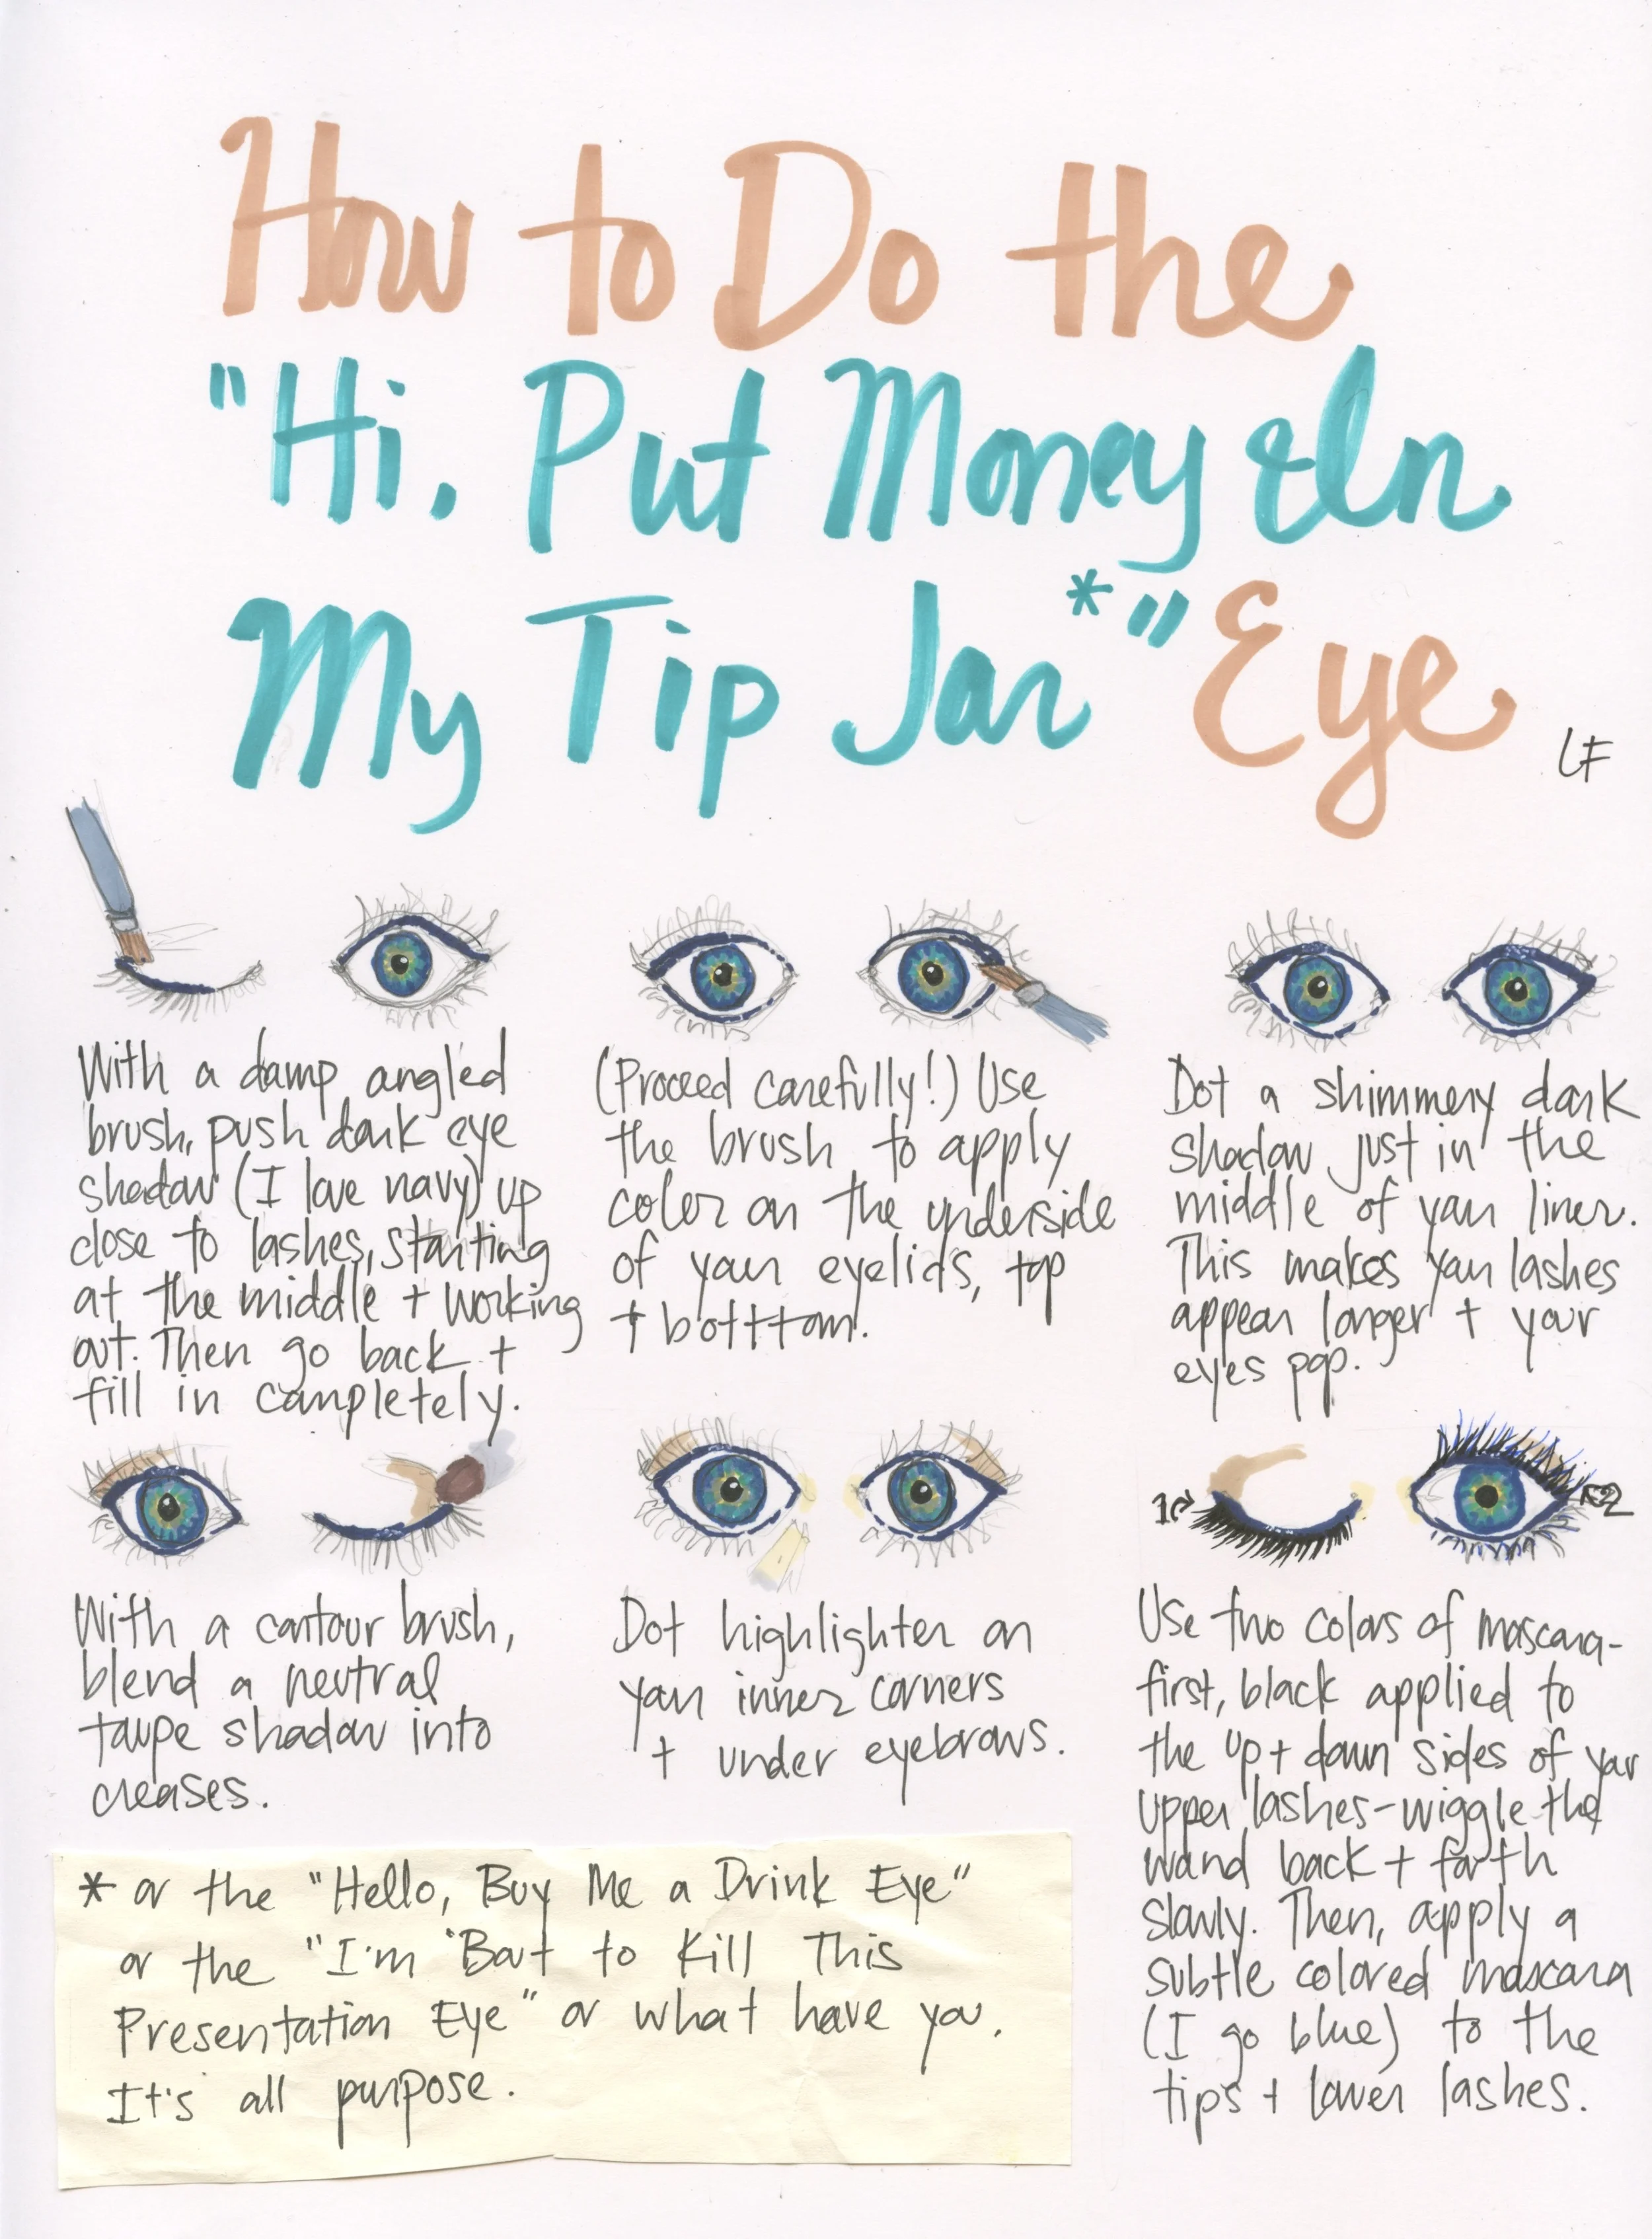 How to Do the
"Hi. Put Money In
My Tip Jar*" Eye
LF
With a damp angled
brush, push dark eye
shadow (I love navy) up
close to lashes, starting
at the middle + working
out. Then go back +
fill in completely.
(Proceed carefully!) Use
the brush to apply
color on the underside
of your eyelids, top
+ botttom.
Dot a shimmery dark
shadow just in the
middle of your liner.
This makes your lashes
appear longer + your
eyes pop.
With a contour brush,
blend a neutral
taupe shadow into
creases.
Dot highlighter on
your inner corners
+ under eyebrows.
1
2
Use two colors of mascara-
first, black applied to
the up + down sides of your
upper lashes-wiggle the
wand back + forth
slowly. Then, apply a
subtle colored mascara
(I go blue) to the
tips + lower lashes.
* or the "Hello, Buy Me a Drink Eye"
or the "I'm 'Bout to Kill This
Presentation Eye" or what have you.
It's all purpose.